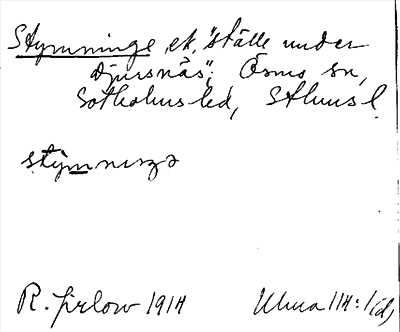 Stymninge ek, "ställe under
Djursnäs"; Ösmo sn,
Sotholms hd, Sthms l.
stymninge
R. Jirlow 1914 Ulma 114:1(d)